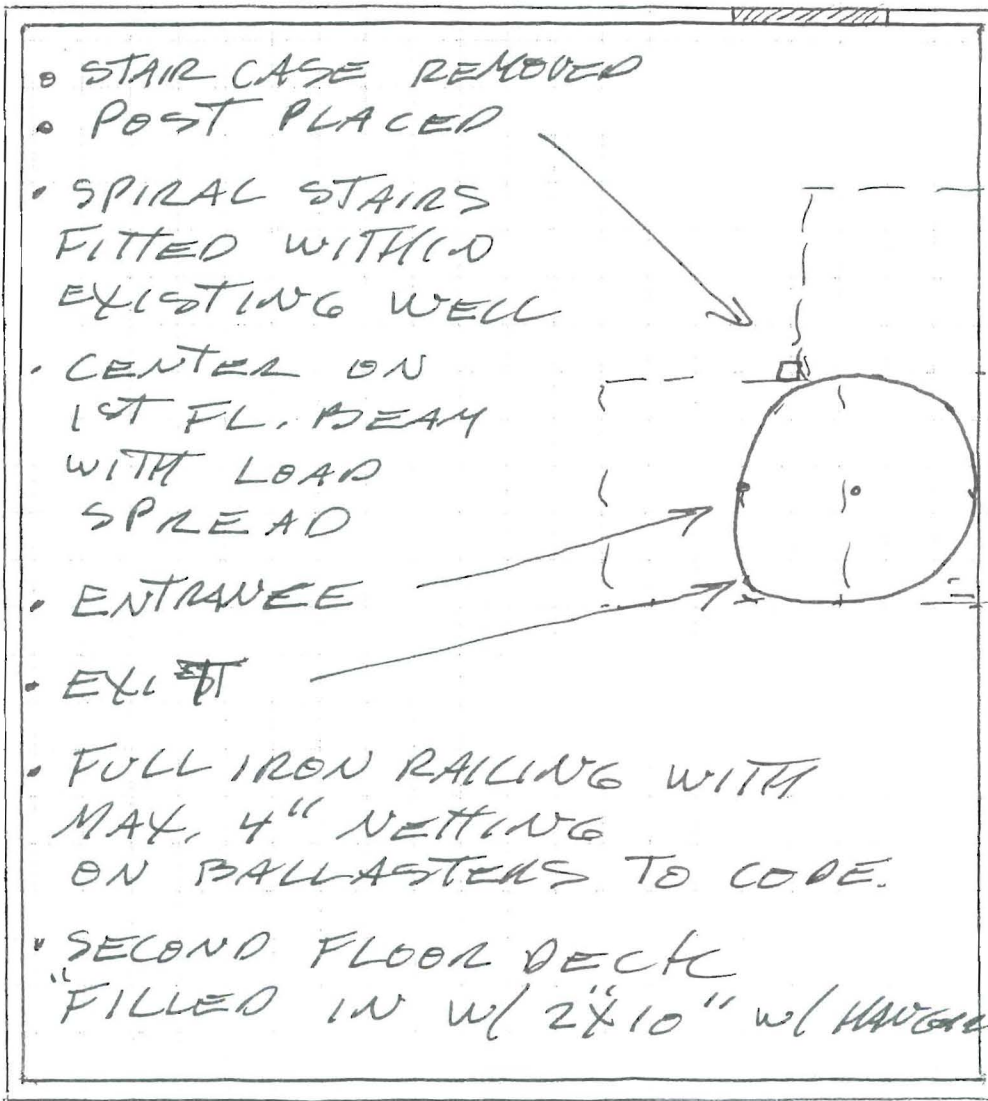 • STAIR CASE REMOVED
• POST PLACED
• SPIRAL STAIRS
FITTED WITHIN
EXISTING WELL
• CENTER ON
1ST FL. BEAM
WITH LOAD
SPREAD
• ENTRANCE
• EXIT
• FULL IRON RAILING WITH
MAX. 4" NETTING
ON BALLASTERS TO CODE.
• SECOND FLOOR DECK
"FILLED IN W/ 2"X10" W/